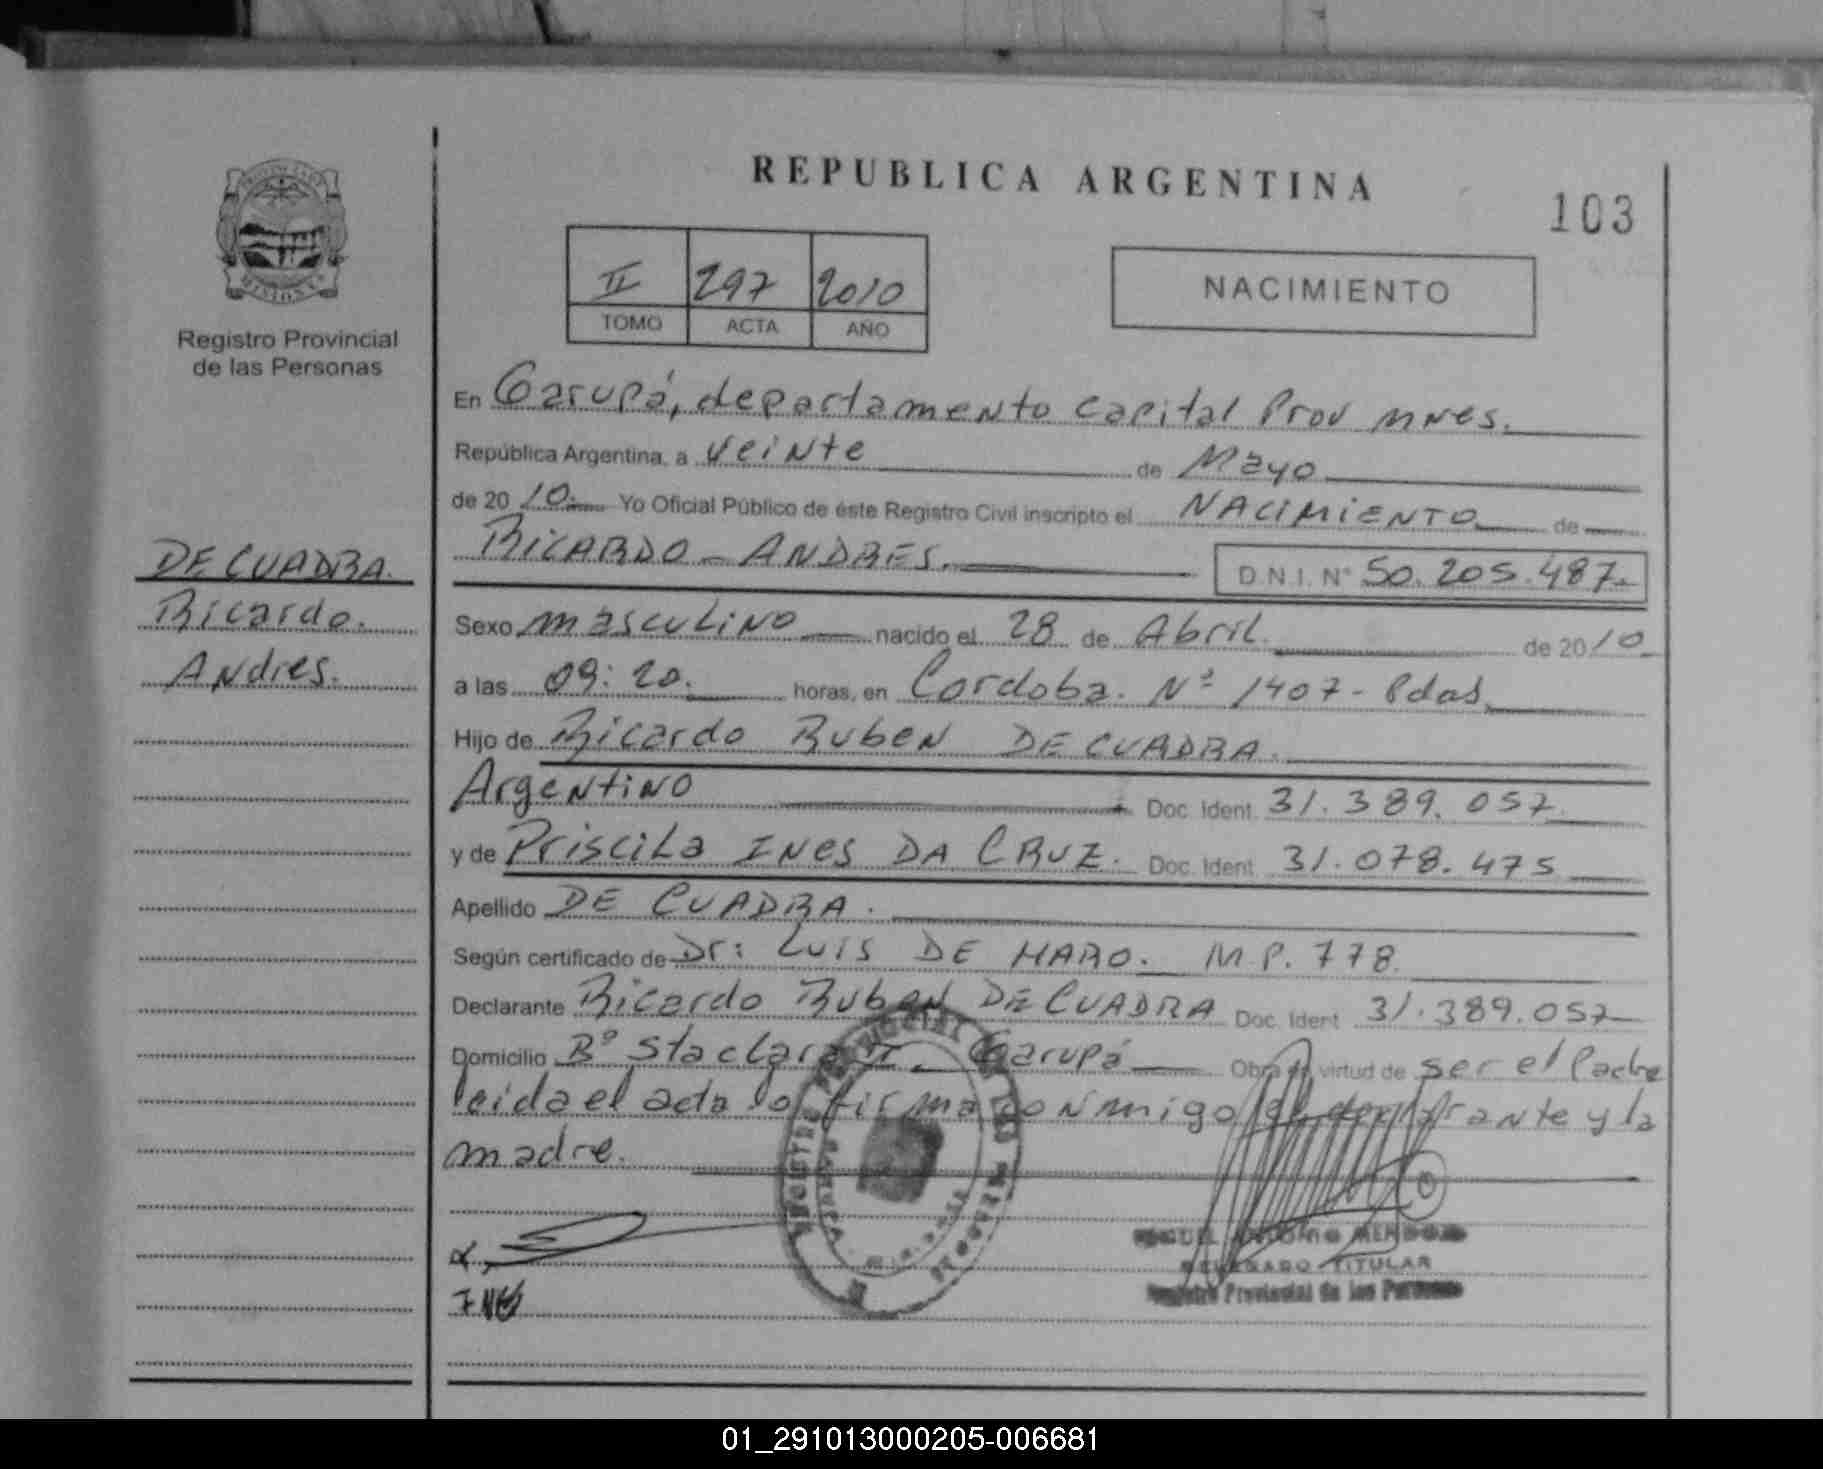 REPUBLICA ARGENTINA
103
II 297 2010
TOMO ACTA AÑO
NACIMIENTO
MISIONES
Registro Provincial
de las Personas
DE CUADRA.
Ricardo.
Andres.
En Garupá, departamento capital Prov mnes.
República Argentina, a veinte de Mayo
de 2010. Yo Oficial Público de éste Registro Civil inscripto el NACIMIENTO de
RICARDO - ANDRES. D.N.I. N° 50.205.487.
Sexo masculino nacido el 28 de Abril de 2010
a las 09:20. horas, en Cordoba. Nº 1407 - Pdas.
Hijo de Ricardo Ruben DE CUADRA.
Argentino Doc. Ident. 31.389.057.
y de Priscila INes DA CRUZ. Doc. Ident. 31.078.475
Apellido DE CUADRA.
Según certificado de Dr: LUIS DE HARO. M.P. 778.
Declarante Ricardo Ruben DE CUADRA Doc. Ident 31.389.057
Domicilio Bº Sta clara II. Garupá Obra en virtud de ser el Padre
leida el acta lo firma conmigo el declarante y la
madre.
INES
MIGUEL ANTONIO MENDOZA
DELEGADO TITULAR
Registro Provincial de las Personas
REGISTRO PROVINCIAL DE LAS PERSONAS
01_291013000205-006681